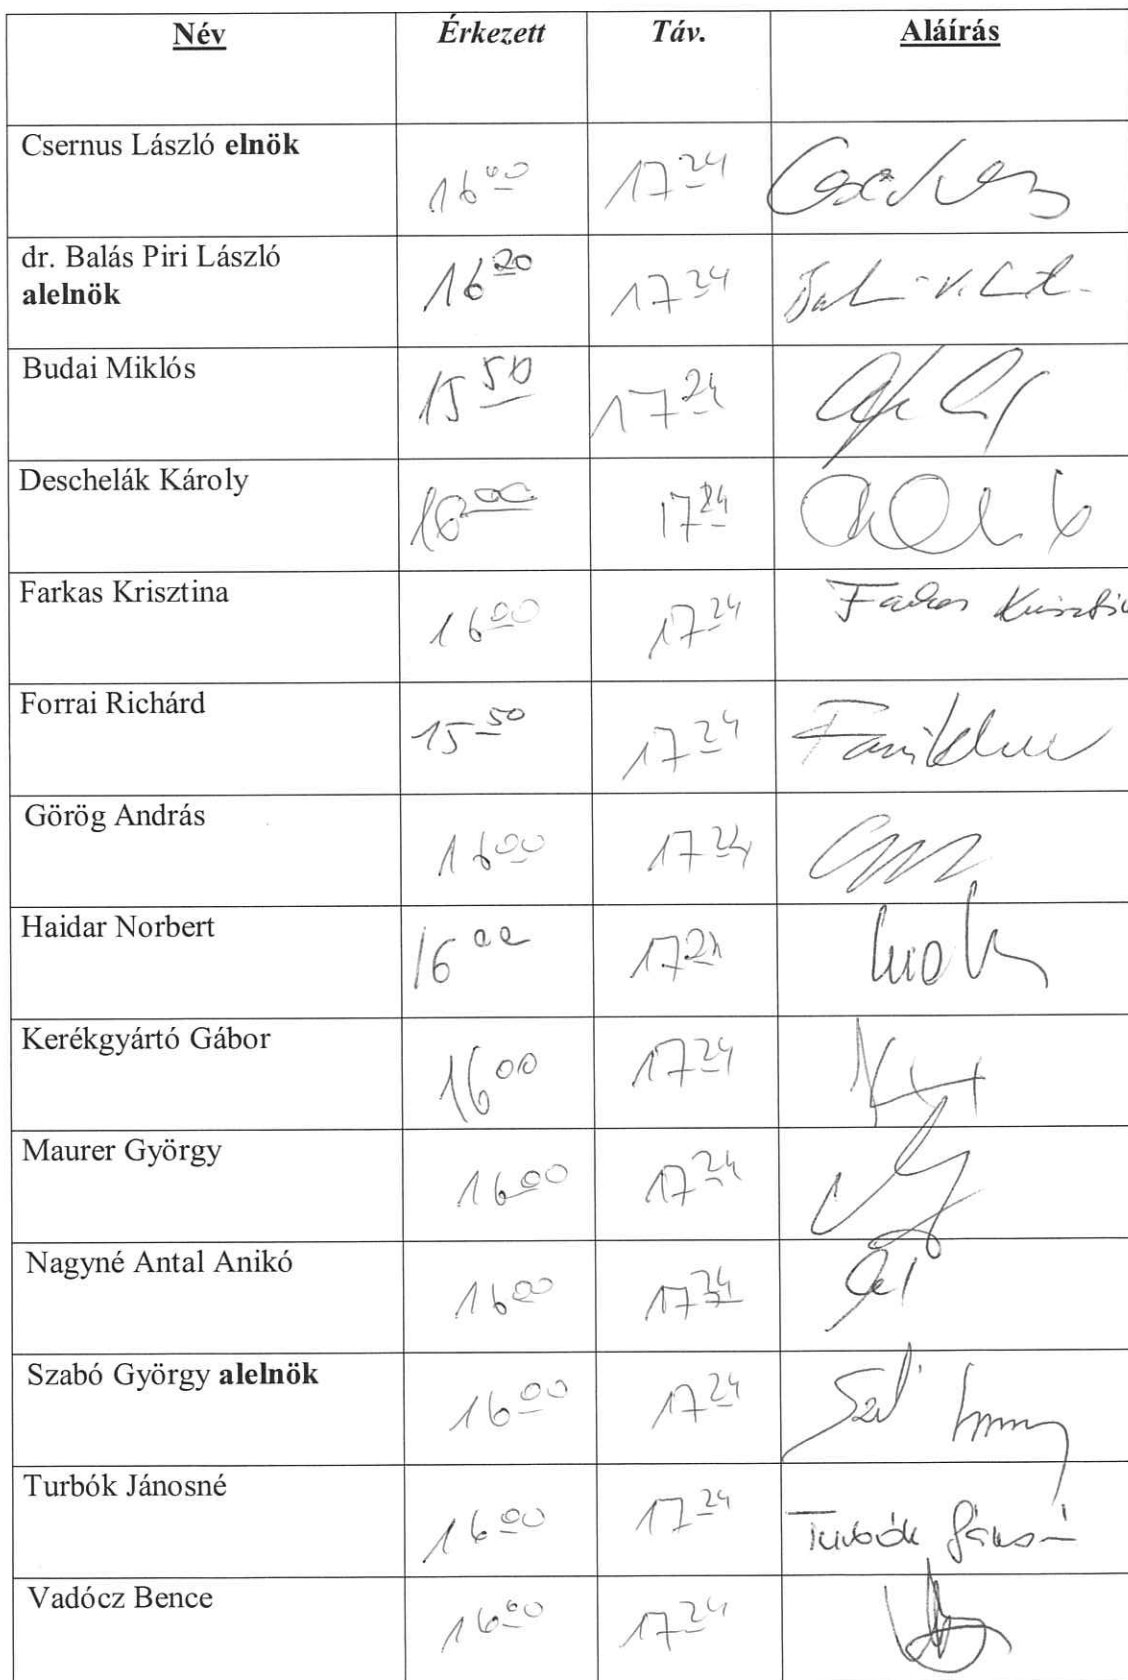 Név Érkezett Táv. Aláírás
Csernus László elnök 16 00 17 24
dr. Balás Piri László 16 20 17 24
alelnök
Budai Miklós 15 50 17 24
Deschelák Károly 16 00 17 24
Farkas Krisztina 16 00 17 24 Farkas Krisztin
Forrai Richárd 15 50 17 24
Görög András 16 00 17 24
Haidar Norbert 16 00 17 24
Kerékgyártó Gábor 16 00 17 24
Maurer György 16 00 17 24
Nagyné Antal Anikó 16 00 17 24
Szabó György alelnök 16 00 17 24
Turbók Jánosné 16 00 17 24 Turbók Jánosné
Vadócz Bence 16 00 17 24